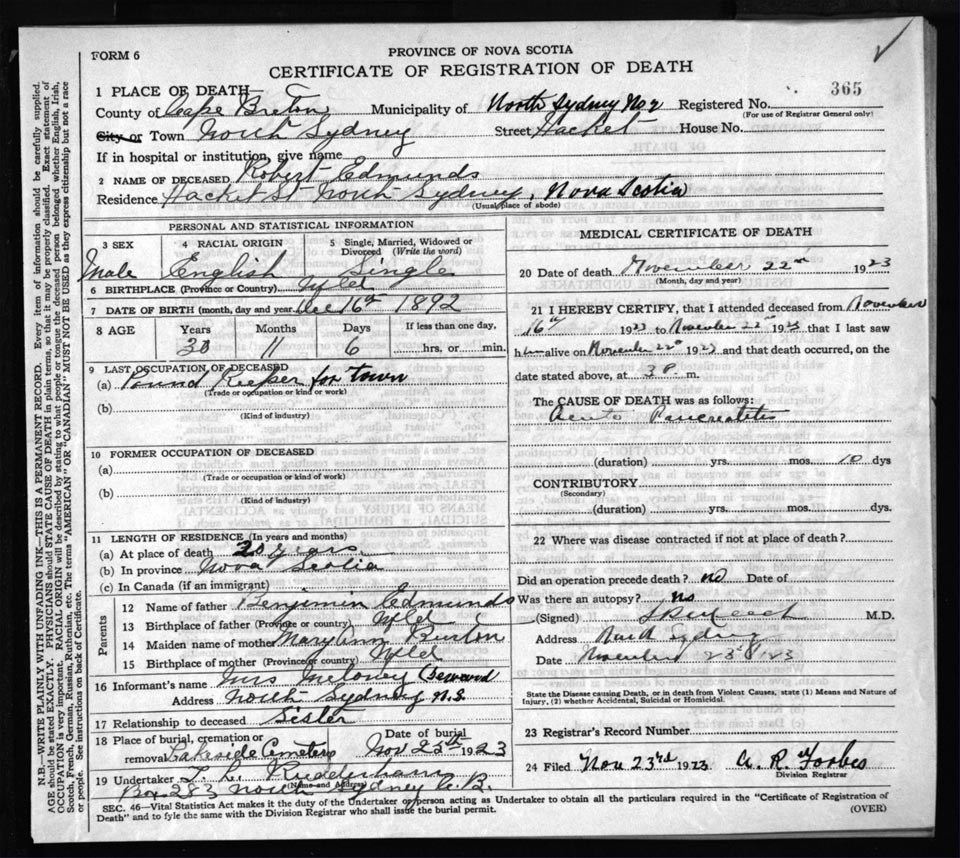 FORM 6
PROVINCE OF NOVA SCOTIA
CERTIFICATE OF REGISTRATION OF DEATH
365
1 PLACE OF DEATH
County of Cape Breton Municipality of North Sydney No 2 Registered No.
(For use of Registrar General only)
City or Town North Sydney Street Hacket House No.
If in hospital or institution, give name
2 NAME OF DECEASED Robert Edmunds
Residence Hacket St North Sydney, Nova Scotia
(Usual place of abode)
PERSONAL AND STATISTICAL INFORMATION
3 SEX 4 RACIAL ORIGIN 5 Single, Married, Widowed or Divorced (Write the word)
Male English Single
6 BIRTHPLACE (Province or Country) Nfld
7 DATE OF BIRTH (month, day and year) Dec 16th 1892
8 AGE Years Months Days If less than one day,
30 11 6 hrs. or min.
9 LAST OCCUPATION OF DECEASED
(a) Pound Keeper for town
(Trade or occupation or kind or work)
(b)
(Kind of industry)
10 FORMER OCCUPATION OF DECEASED
(a)
(Trade or occupation or kind of work)
(b)
(Kind of industry)
11 LENGTH OF RESIDENCE (In years and months)
(a) At place of death 20 years
(b) In province Nova Scotia
(c) In Canada (if an immigrant)
Parents
12 Name of father Benjimin Edmunds
13 Birthplace of father (Province or country) Nfld
14 Maiden name of mother Mary Ann Burton
15 Birthplace of mother (Province or country) Nfld
16 Informant's name Mrs Meloney
Address North Sydney N.S.
17 Relationship to deceased Sister
18 Place of burial, cremation or removal Lakeside Cemetery Date of burial Nov 25th 1923
19 Undertaker
(Name and Address)
Box 283 North Sydney C.B.
MEDICAL CERTIFICATE OF DEATH
20 Date of death November 22nd 1923
(Month, day and year)
21 I HEREBY CERTIFY, that I attended deceased from November
16th 1923 to November 22nd 1923 that I last saw
him alive on November 22nd 1923 and that death occurred, on the
date stated above, at 3 P. m.
The CAUSE OF DEATH was as follows:
Acute Pancreatitis
(duration) yrs. mos. 10 dys
CONTRIBUTORY
(Secondary)
(duration) yrs. mos. dys.
22 Where was disease contracted if not at place of death?
Did an operation precede death? no Date of
Was there an autopsy? no
(Signed) M.D.
Address North Sydney
Date November 23rd 1923
State the Disease causing Death, or in death from Violent Causes, state (1) Means and Nature of
Injury, (2) whether Accidental, Suicidal or Homicidal.
23 Registrar's Record Number
24 Filed Nov 23rd 1923 A. R. Forbes
Division Registrar
SEC. 46—Vital Statistics Act makes it the duty of the Undertaker or person acting as Undertaker to obtain all the particulars required in the "Certificate of Registration of
Death" and to fyle the same with the Division Registrar who shall issue the burial permit. (OVER)
N.B.—WRITE PLAINLY WITH UNFADING INK—THIS IS A PERMANENT RECORD. Every item of information should be carefully supplied.
AGE should be stated EXACTLY. PHYSICIANS should STATE CAUSE OF DEATH in plain terms, so that it may be properly classified. Exact statement of
OCCUPATION is very important. RACIAL ORIGIN will be described by stating to what people or tongue the deceased person belonged whether English, Irish,
Scotch, French, German, Russian, Ruthenian, etc. The terms "AMERICAN" OR "CANADIAN" MUST NOT BE USED as they express citizenship but not a race
or people. See instructions on back of Certificate.